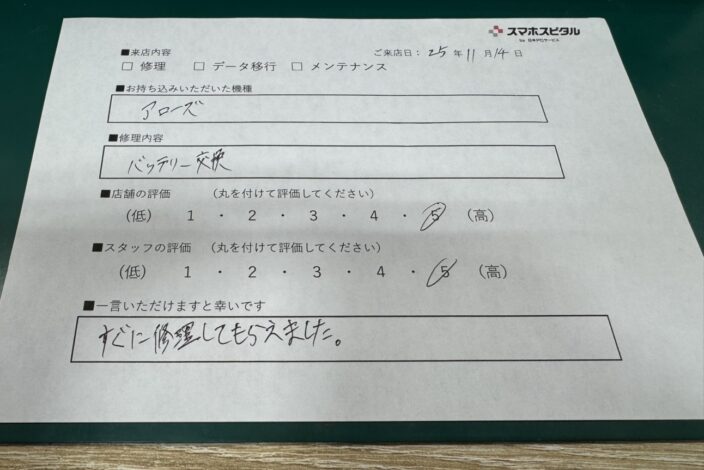 スマホスピタル
by 日本PCサービス
■来店内容
ご来店日：25年11月14日
□ 修理 □ データ移行 □ メンテナンス
■お持ち込みいただいた機種
アローズ
■修理内容
バッテリー交換
■店舗の評価 （丸を付けて評価してください）
（低） 1 ・ 2 ・ 3 ・ 4 ・ 5 （高）
■スタッフの評価 （丸を付けて評価してください）
（低） 1 ・ 2 ・ 3 ・ 4 ・ 5 （高）
■一言いただけますと幸いです
すぐに修理してもらえました。